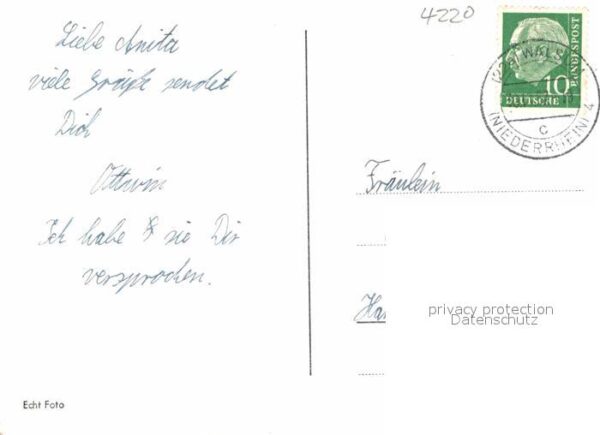 Liebe Anita
viele Grüße sendet
Dich
Ottwin
Ich habe sie Dir
versprochen.
Echt Foto
4220
10
DEUTSCHE BUNDESPOST
(22a) WALSUM
(NIEDERRHEIN) 4
c
Fräulein
Ha
privacy protection
Datenschutz